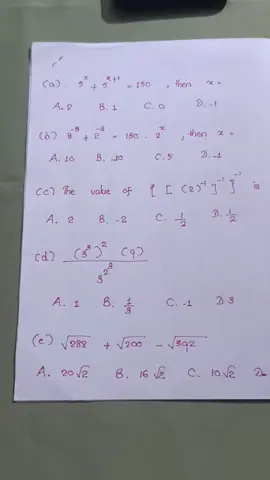 (a). 5^x + 5^(x+1) = 150 , then x =
A. 2 B. 1 C. 0 D. -1
(b) 8^-8 ÷ 2^-3 = 150 · 2^x , then x =
A. 10 B. -10 C. 5 D. -1
(c) The value of [ [ (2)^-1 ]^-1 ]^-1 is
A. 2 B. -2 C. 1/2 D. 1/2
(d) (3^3)^2 (9) / 3^2^3
A. 1 B. 1/3 C. -1 D. 3
(e) √288 + √200 - √392
A. 20√2 B. 16√2 C. 10√2 D.